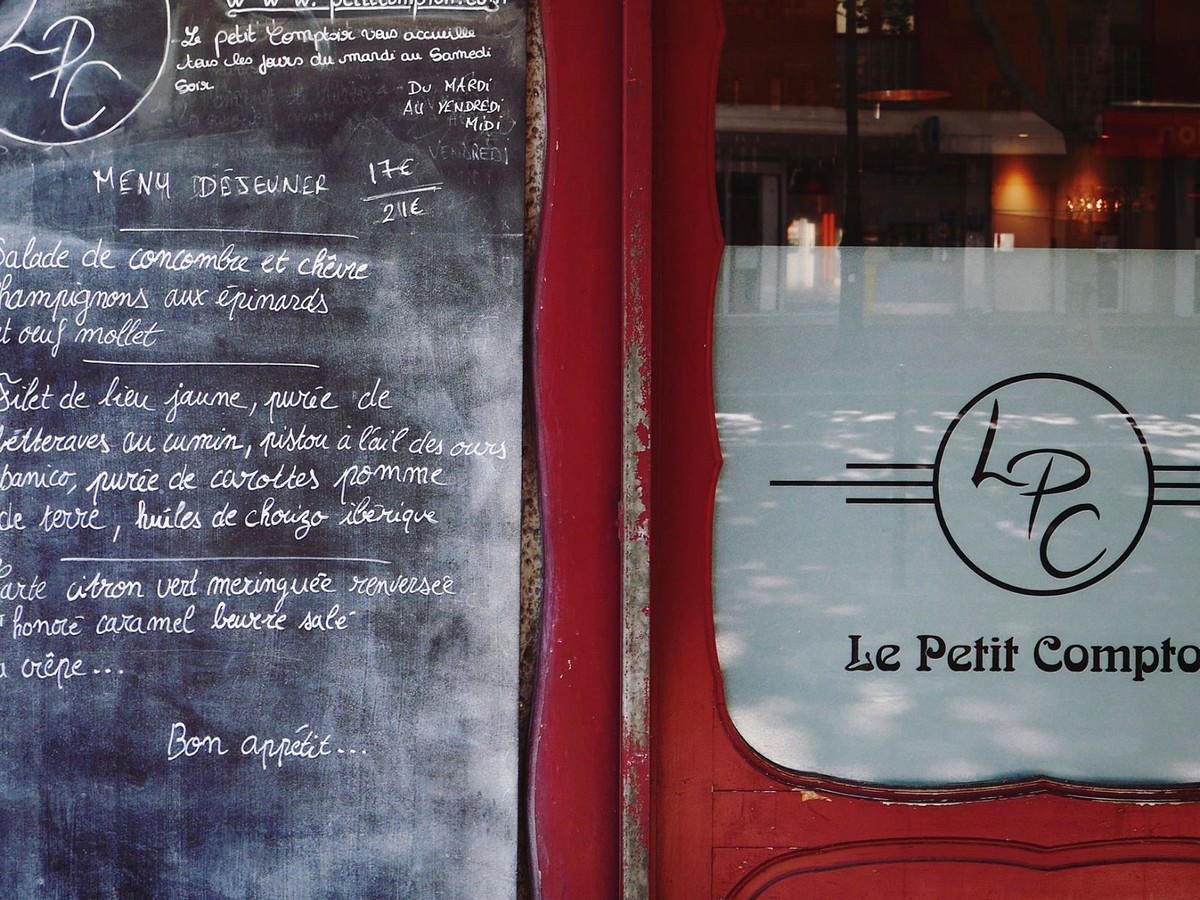 LPC
www.petitcompton.com
Le petit Comptoir vous accueille
tous les jours du mardi au Samedi
Soir
DU MARDI
AU VENDREDI
MIDI
VENDREDI
MENU DÉJEUNER 17€
21€
Salade de concombre et chèvre
hampignons aux épinards
t oeuf mollet
Filet de lieu jaune, purée de
bétteraves au cumin, pistou à l'ail des ours
banico, purée de carottes pomme
de terre, huiles de chorizo ibérique
arte citron vert meringuée renversée
honoré caramel beurre salé
crêpe...
Bon appétit...
LPC
Le Petit Compto